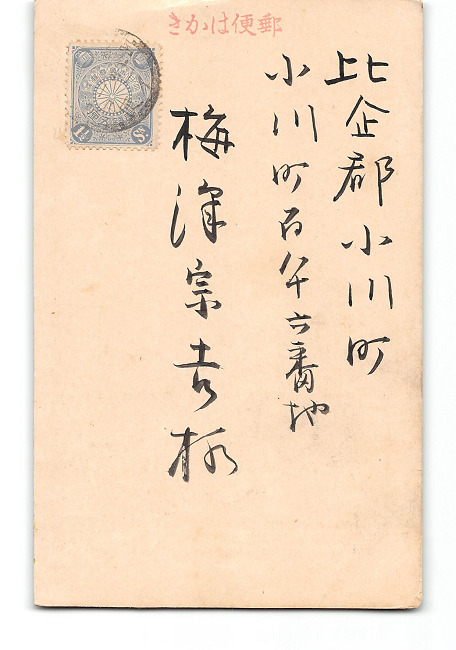 郵便はかき
比企郡小川町
小川町百八十六番地
梅澤宗吉様
1½ Sn